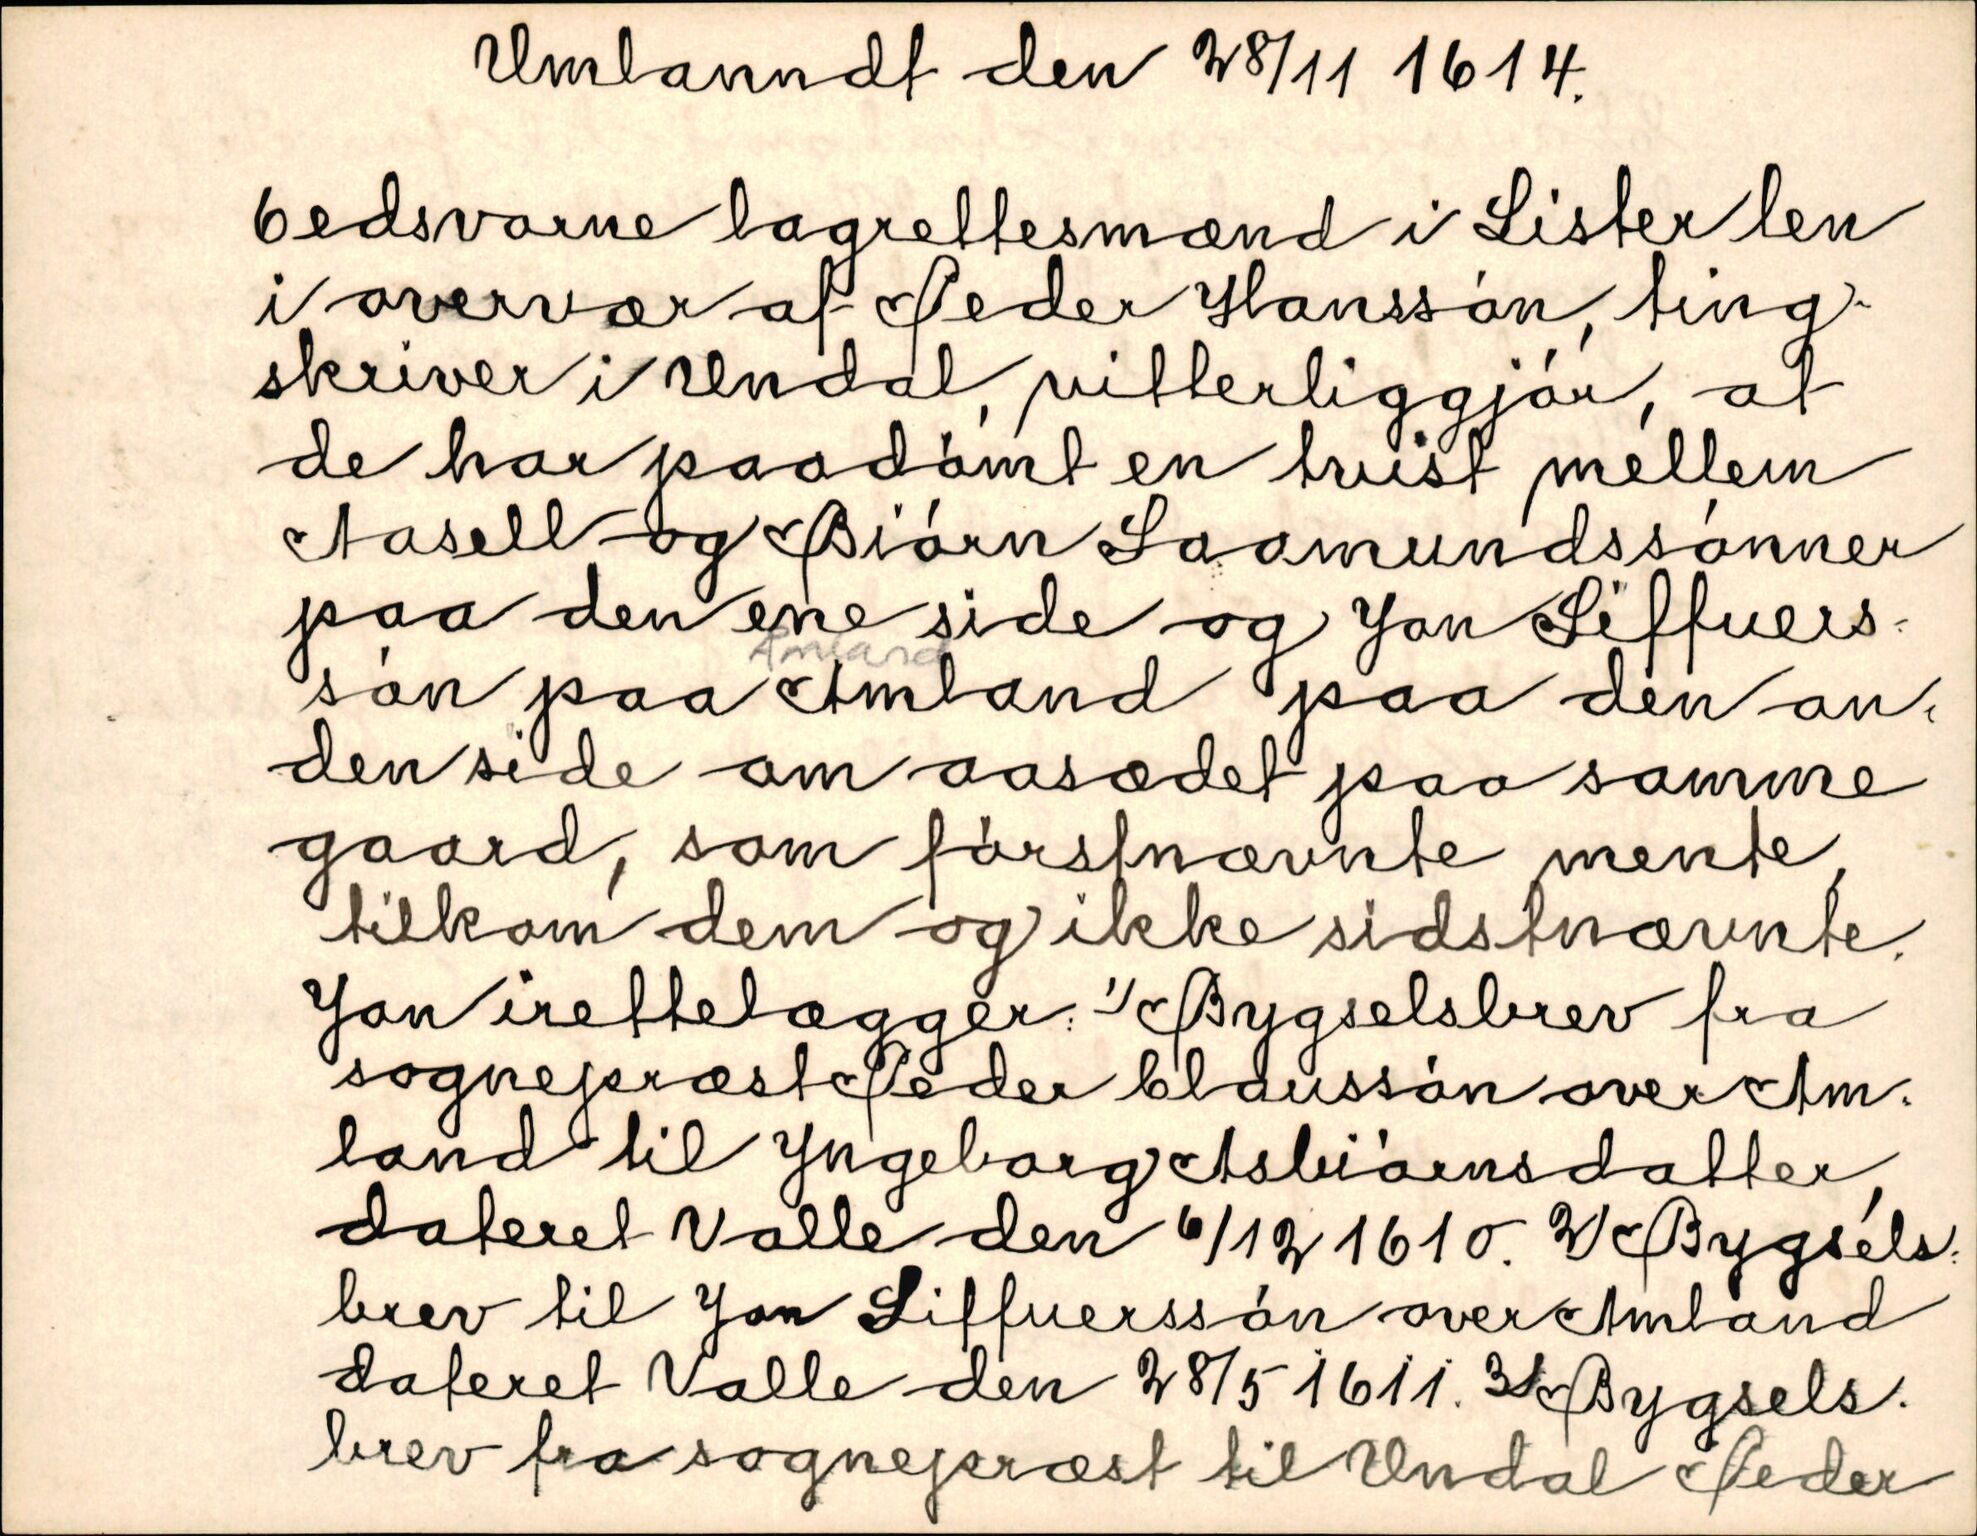 Umlanndt den 28/11 1614.
6 edsvorne lagrettesmænd i Lister len
i overvær af Peder Hanssón, ting-
skriver i Undal, vitterliggjór, at
de har paadómt en tvist mellem
Aasell og Biórn Saamundssónner
paa den ene side og Jon Siffuers-
Amland
són paa Amland paa den an-
den side om aasædet paa samme
gaard, som fórstnævnte mente,
tilkom dem og ikke sidstnævnte.
Jon irettelægger: 1/ Bygselsbrev fra
sognepræst Peder Claussón over Am-
land til Yngeborg Asbiórnsdatter,
dateret Valle den 6/12 1610. 2/ Bygsels-
brev til Jon Siffuerssón over Amland
dateret Valle den 28/5 1611. 3/ Bygsels-
brev fra sognepræst til Undal Peder